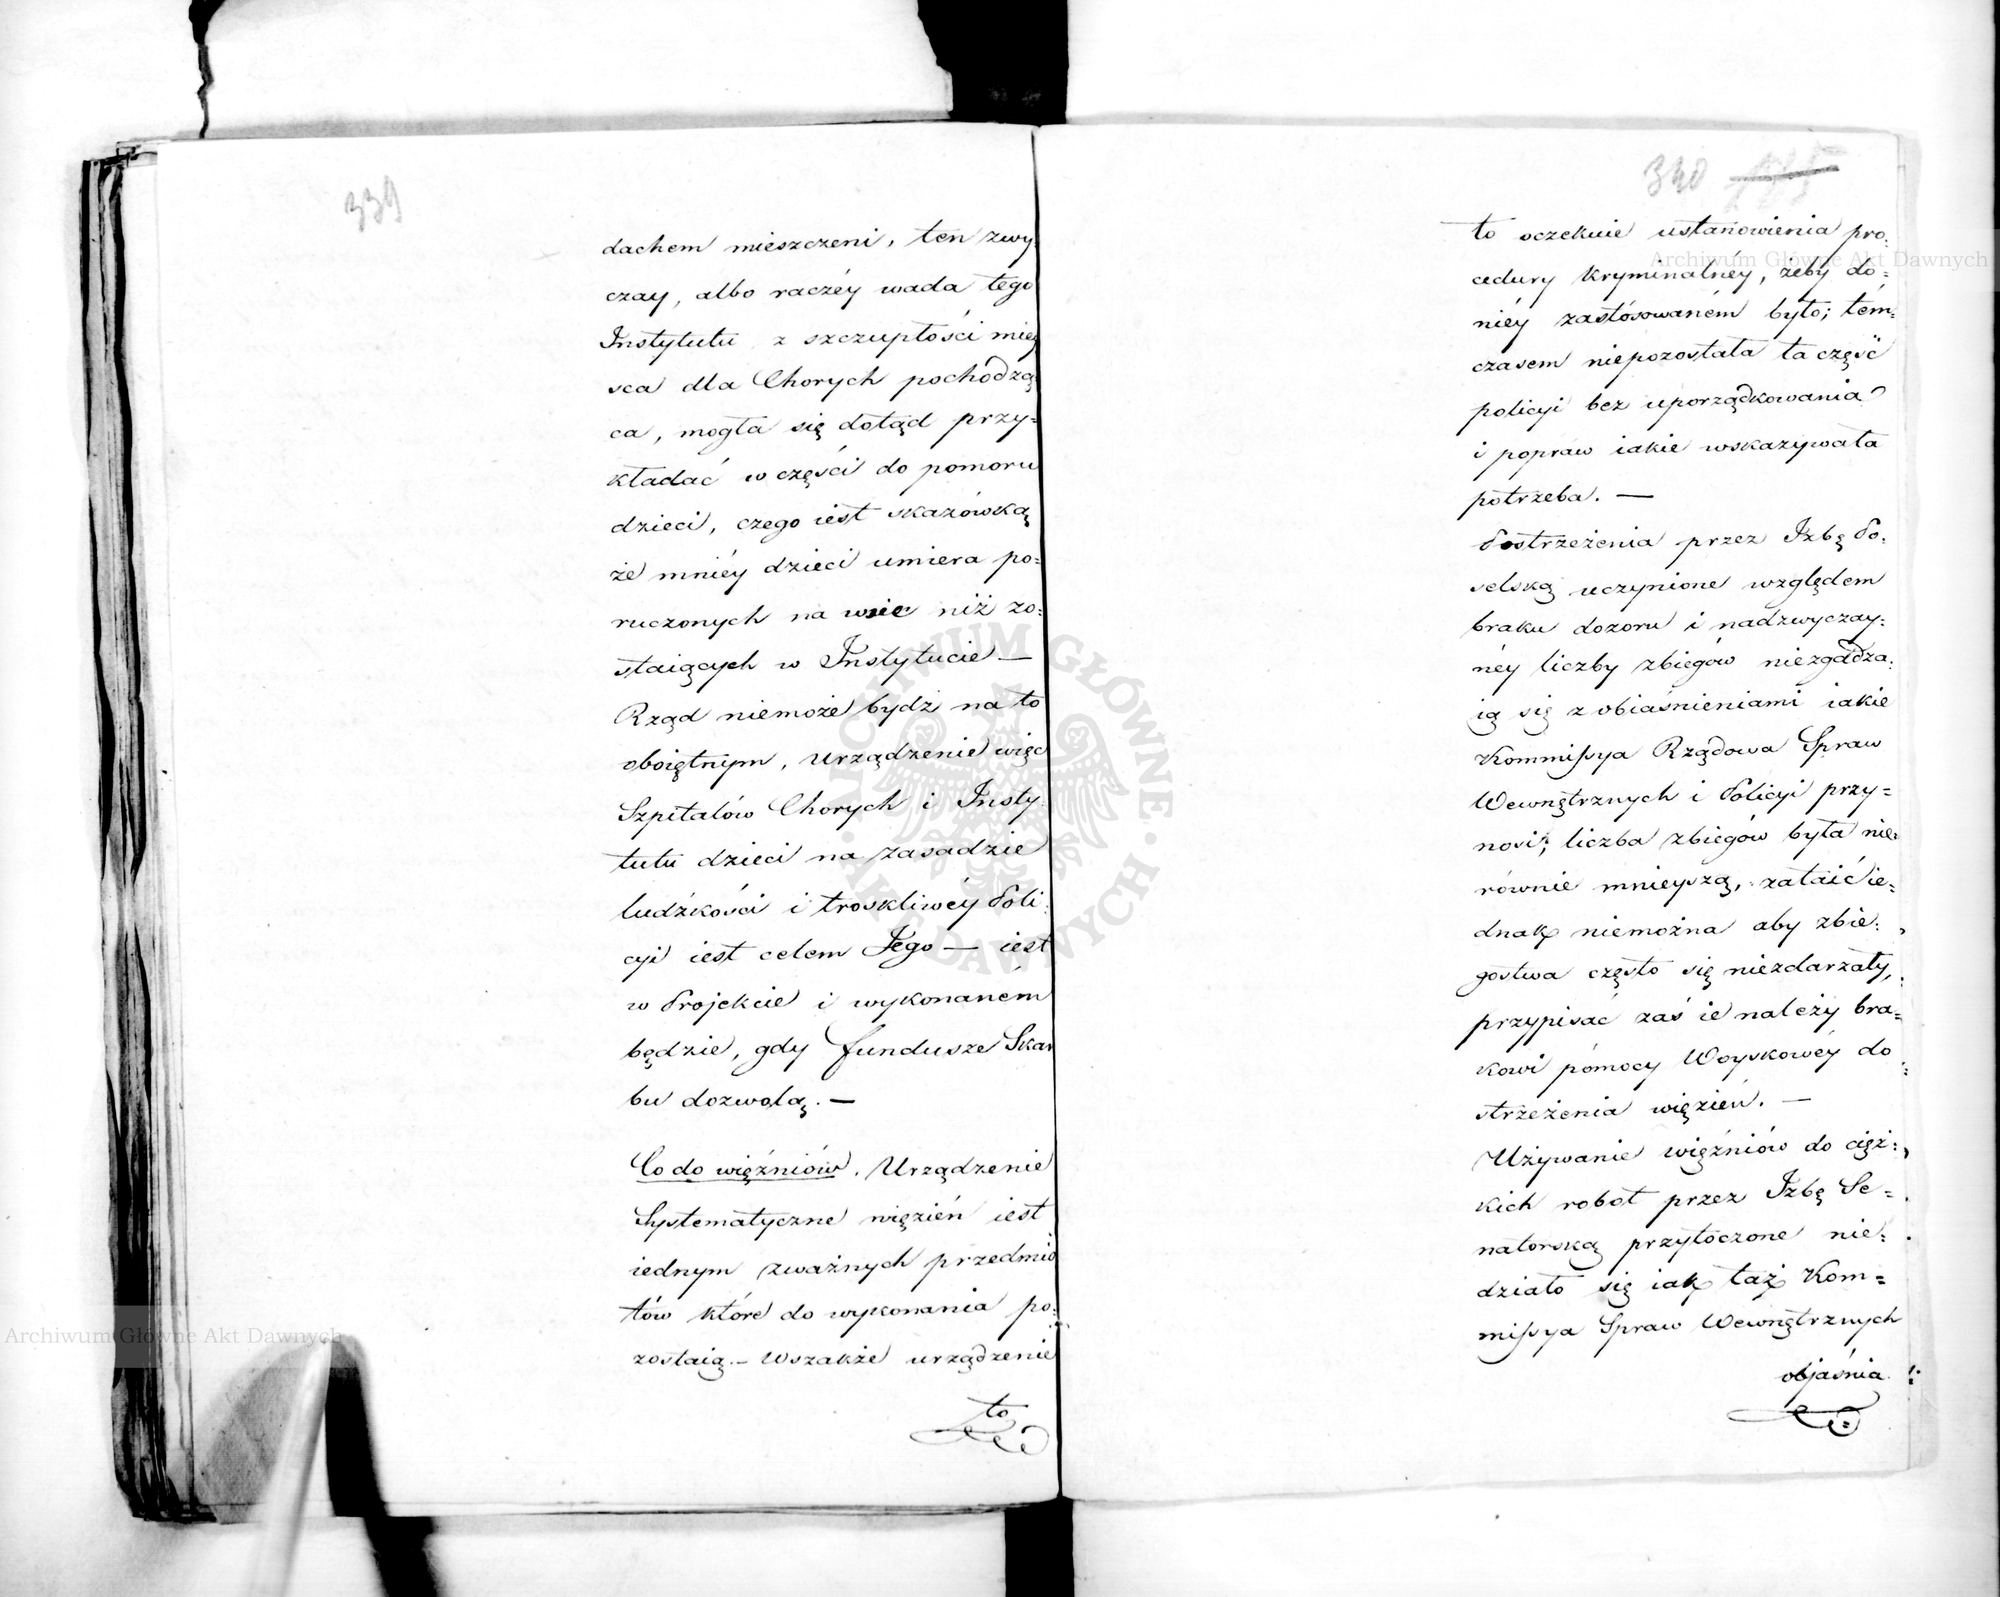 339
dachem mieszczeni, ten zwy
czay, albo raczéy wada tego
Instytutu z szczupłości miey
sca dla Chorych pochodzą
ca, mogła się dotąd przy=
kładać w części do pomoru
dzieci, czego iest skazówką
że mniéy dzieci umiera po=
ruczonych na wsie niż zo=
staiących w Instytucie —
Rząd niemoże bydź na to
oboiętnym, urządzenie więc
Szpitalów Chorych i Insty
tutu dzieci na zasadzie
ludzkości i troskliwéy Poli
cyi iest celem Jego — iest
w Projekcie i wykonaném
będzie, gdy fundusze Skar
bu dozwolą. —
Co do więźniów. Urządzenie
Systematyczne więzień iest
iednym zważnych przedmio
tów które do wykonania po=
zostaią. — Wszakże urządzenie
to
340
to oczekuie ustanowienia pro=
cedury kryminalney, żeby do=
niéy zastósowaném było; tém=
czasem niepozostała ta część
policyi bez uporządkowania
i popraw iakie wskazywała
potrzeba. —
Postrzeżenia przez Izbę Po=
selską uczynione względem
braku dozoru i nadzwyczay=
néy liczby zbiegów niezgadza=
ią się z obiaśnieniami iakie
Kommissya Rządowa Spraw
Wewnętrznych i Policyi przy=
nosi; liczba zbiegów była nie=
równie mnieyszą, zataić ie=
dnak niemożna aby zbie=
gostwa często się niezdarzały,
przypisać zaś ie należy bra=
kowi pomocy Woyskowéy do
strzeżenia więzień. —
Używanie więźniów do cięż=
kich robot przez Izbę Se=
natorską przytoczone nie=
działo się iak taż Kom=
missya Spraw Wewnętrznych
objaśnia
Archiwum Główne Akt Dawnych
Archiwum Główne Akt Dawnych
ARCHIWUM GŁÓWNE · AKT DAWNYCH ·